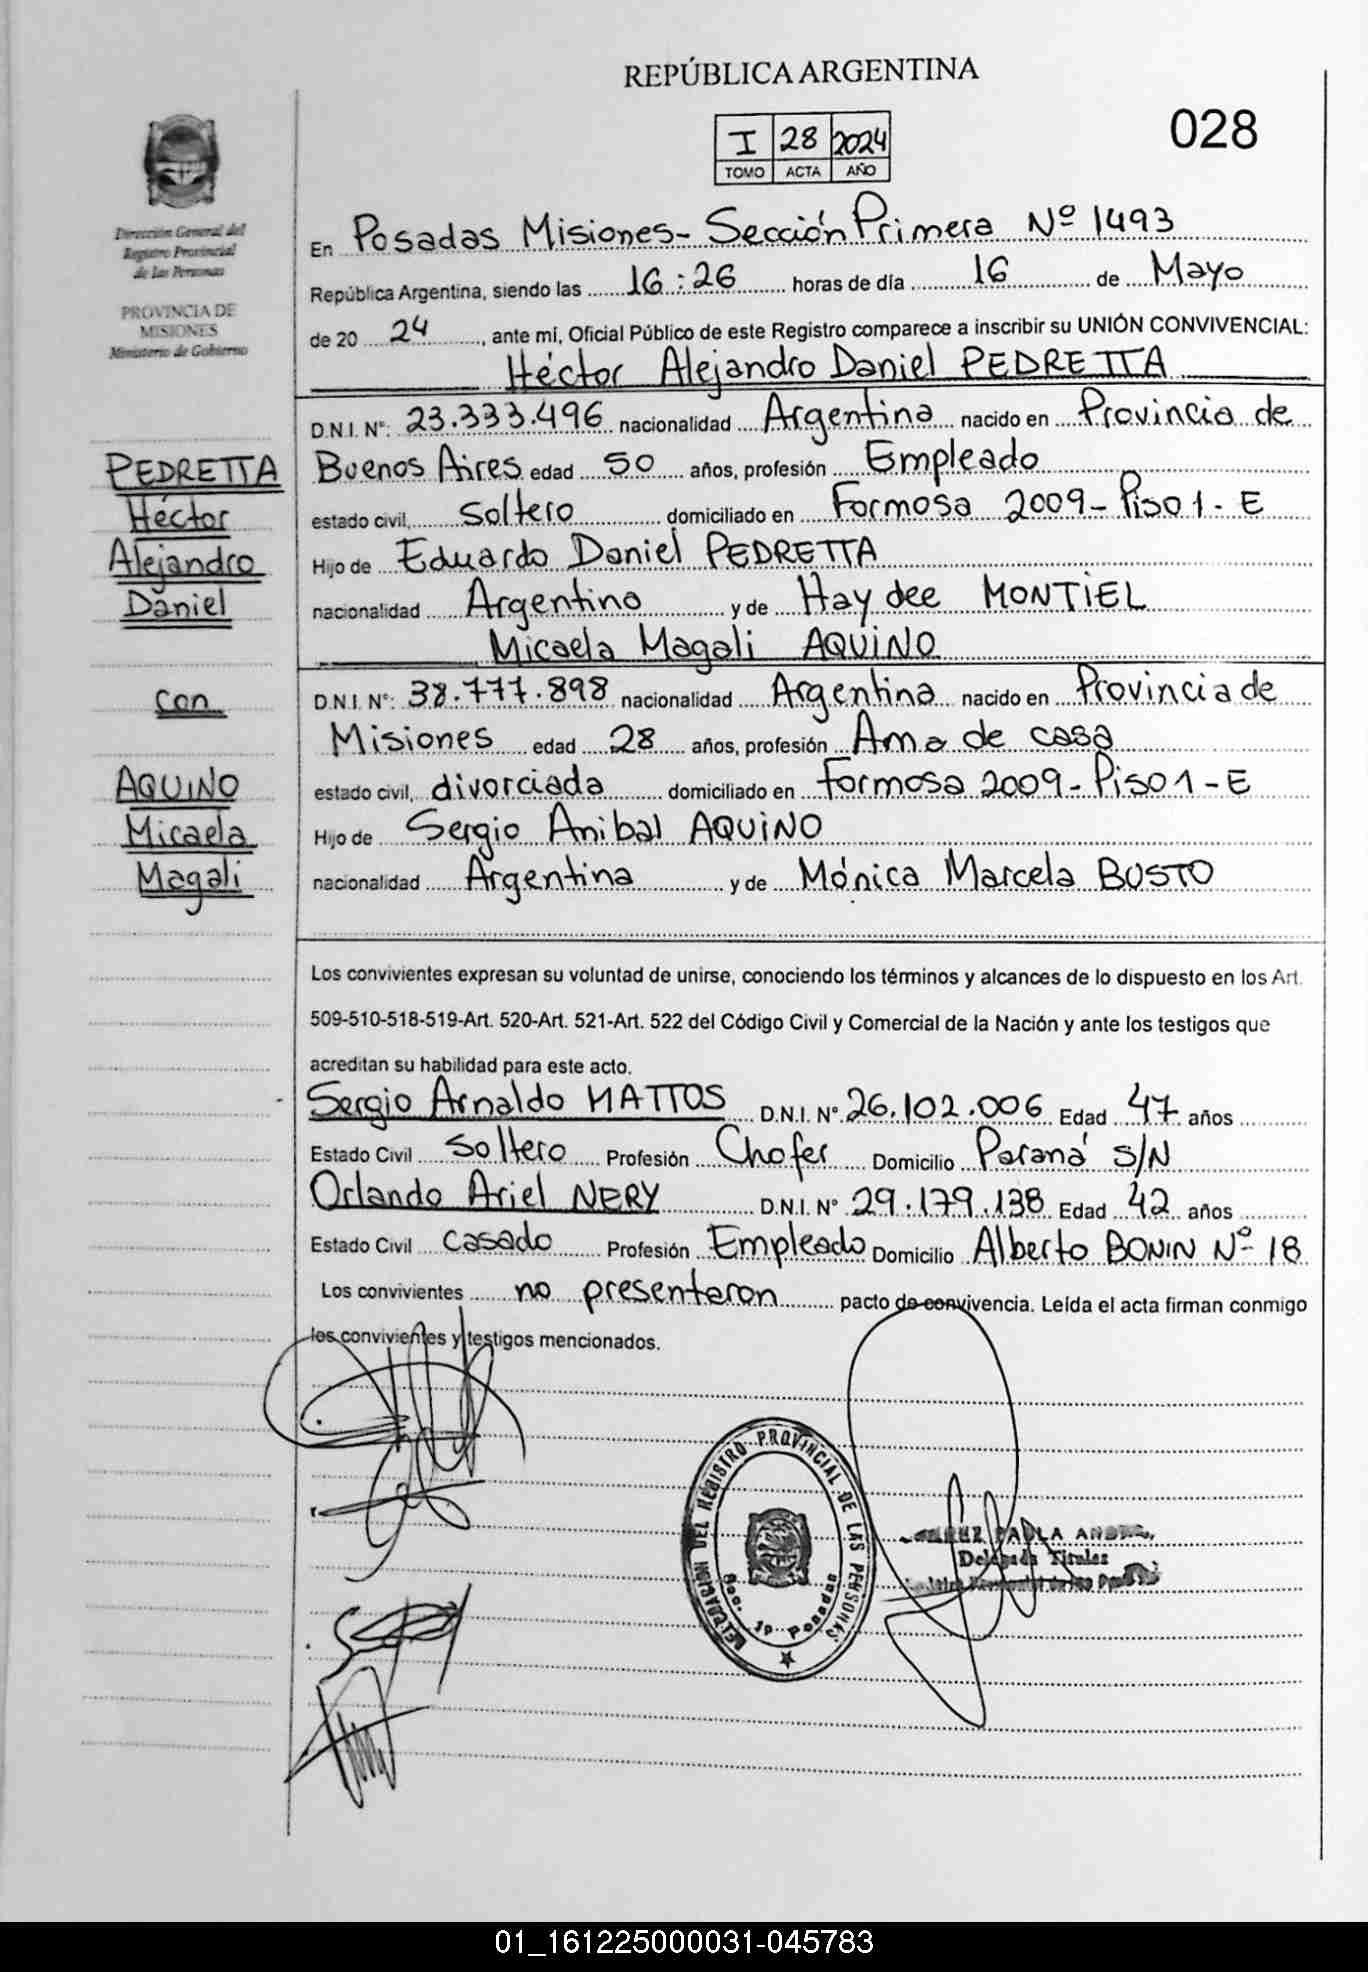 REPÚBLICA ARGENTINA
028
I 28 2024
TOMO ACTA AÑO
Dirección General del
Registro Provincial
de las Personas
PROVINCIA DE
MISIONES
Ministerio de Gobierno
En Posadas Misiones- Sección Primera Nº 1493
República Argentina, siendo las 16:26 horas de día 16 de Mayo
de 20 24, ante mi, Oficial Público de este Registro comparece a inscribir su UNIÓN CONVIVENCIAL:
Héctor Alejandro Daniel PEDRETTA
D.N.I. Nº: 23.333.496 nacionalidad Argentina nacido en Provincia de
Buenos Aires edad 50 años, profesión Empleado
estado civil, soltero domiciliado en Formosa 2009- Piso 1- E
Hijo de Eduardo Daniel PEDRETTA
nacionalidad Argentino y de Haydee MONTIEL
Micaela Magali AQUINO
D.N.I. Nº: 38.777.898 nacionalidad Argentina nacido en Provincia de
Misiones edad 28 años, profesión Ama de casa
estado civil, divorciada domiciliado en Formosa 2009- Piso 1 - E
Hijo de Sergio Anibal AQUINO
nacionalidad Argentina y de Mónica Marcela BUSTO
PEDRETTA
Héctor
Alejandro
Daniel
con
AQUINO
Micaela
Magali
Los convivientes expresan su voluntad de unirse, conociendo los términos y alcances de lo dispuesto en los Art.
509-510-518-519-Art. 520-Art. 521-Art. 522 del Código Civil y Comercial de la Nación y ante los testigos que
acreditan su habilidad para este acto.
Sergio Arnaldo MATTOS D.N.I. Nº 26.102.006 Edad 47 años
Estado Civil soltero Profesión Chofer Domicilio Paraná S/N
Orlando Ariel NERY D.N.I. Nº 29.179.138 Edad 42 años
Estado Civil casado Profesión Empleado Domicilio Alberto BONIN Nº 18
Los convivientes no presentaron pacto de convivencia. Leída el acta firman conmigo
los convivientes y testigos mencionados.
DELEGACION DEL REGISTRO PROVINCIAL DE LAS PERSONAS
Sec. 1ª Posadas
PAOLA
Delegada Titular
01_161225000031-045783